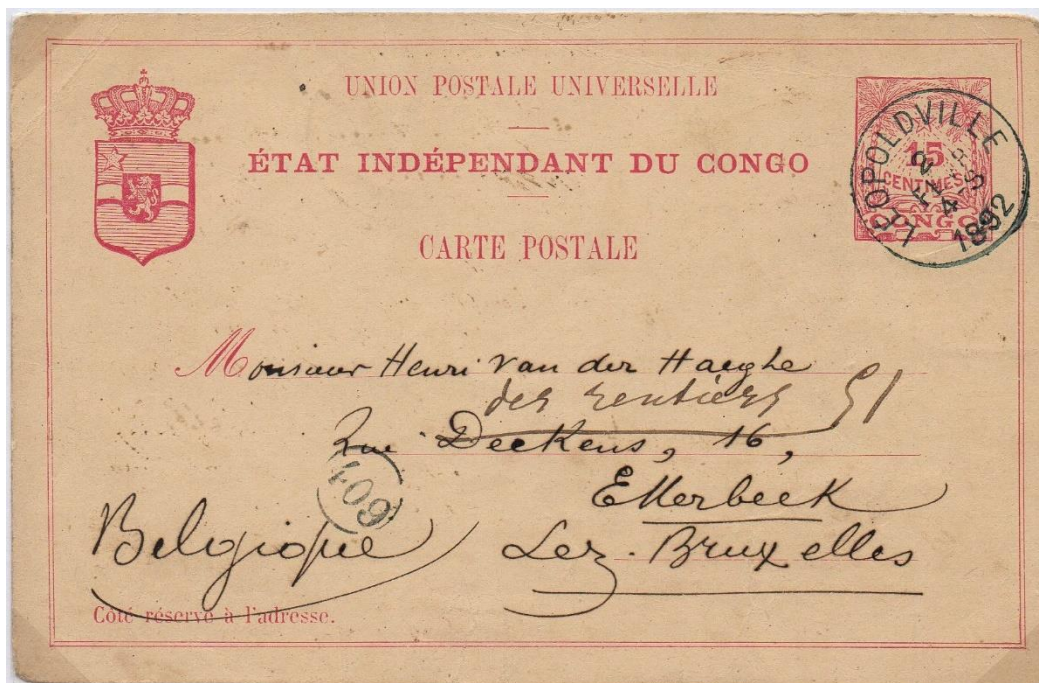 UNION POSTALE UNIVERSELLE
ÉTAT INDÉPENDANT DU CONGO
CARTE POSTALE
15
CENTIMES
CONGO
LEOPOLDVILLE
2
4-S
1892
Monsieur Henri Van der Haeghe
des rentiers 51
Rue Deckens, 16,
Etterbeek
Lez-Bruxelles
Belgique
409
Côté réservé à l'adresse.